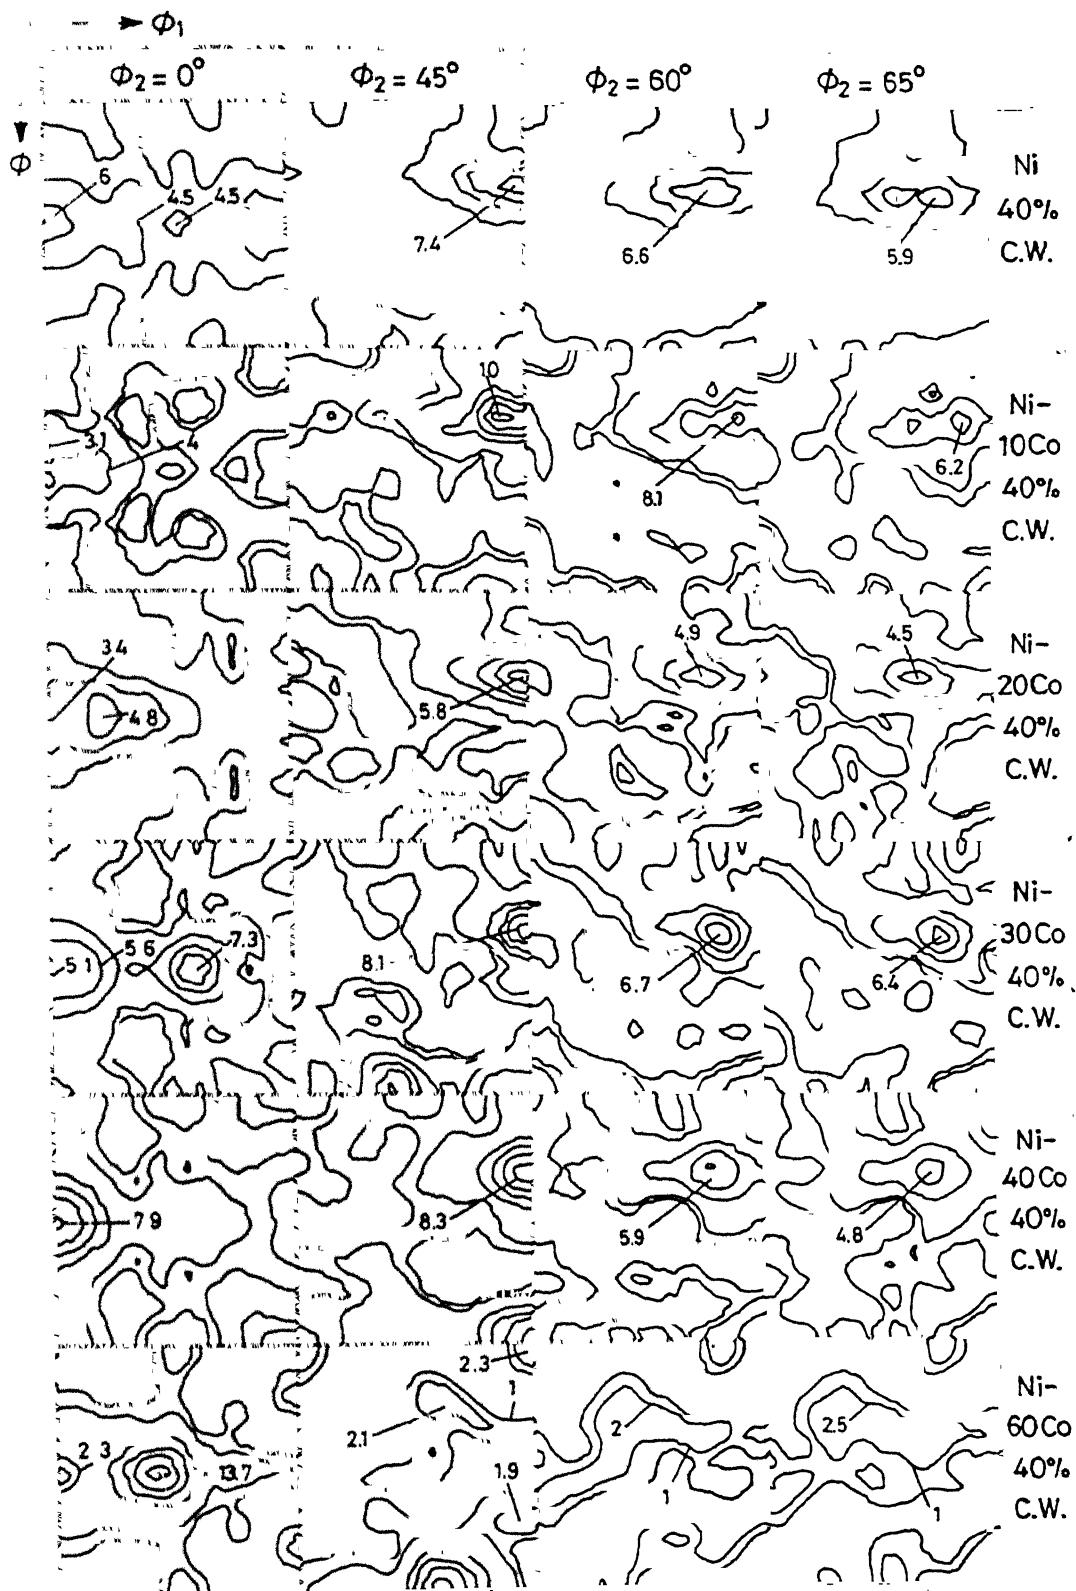 Φ₁
Φ₂ = 0° Φ₂ = 45° Φ₂ = 60° Φ₂ = 65°
Φ
Ni
40%
C.W.
6 4.5 4.5 7.4 6.6 5.9
Ni-
10Co
40%
C.W.
3.1 4 10 8.1 6.2
Ni-
20Co
40%
C.W.
3.4 4.8 5.8 4.9 4.5
Ni-
30Co
40%
C.W.
5.1 5.6 7.3 8.1 6.7 6.4
Ni-
40Co
40%
C.W.
7.9 8.3 5.9 4.8
Ni-
60Co
40%
C.W.
2.3 13.7 2.3 1 2.1 1.9 2 1 2.5 1